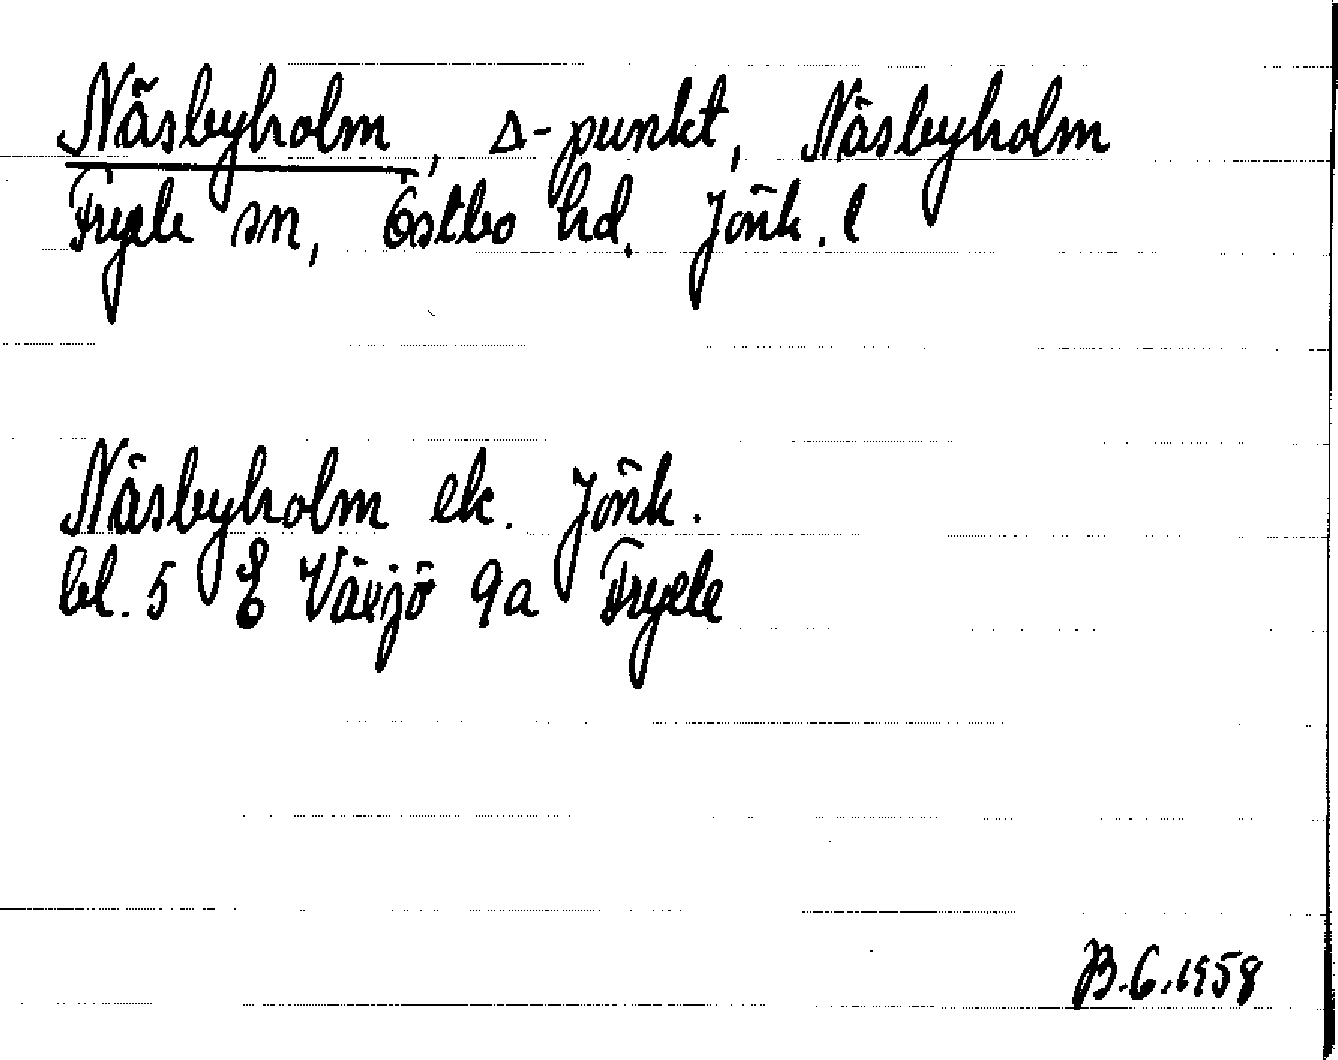 Näsbyholm, Δ-punkt, Näsbyholm
Fryele sn, Östbo hd. Jönk. l
Näsbyholm ek. Jönk.
bl. 5 E Växjö 9a Fryele
B.G.1958